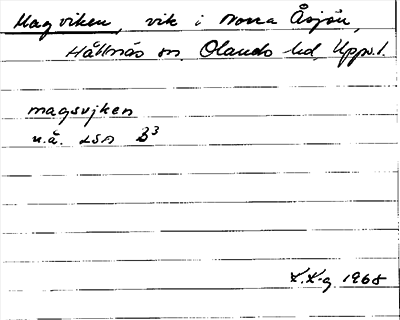 Magviken, vik i Norra Åsjön,
Hållnäs sn. Olands hd, Upps.l.
magsvjken
u.å. LSA B3
K.K-g 1968